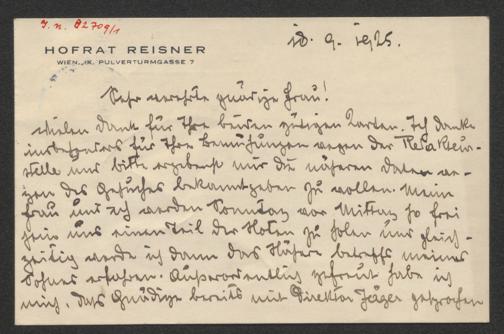 I. n. 82709/1
HOFRAT REISNER
WIEN, IX. PULVERTURMGASSE 7
18. 9. 1925.
Sehr verehrte gnädige Frau!
Vielen Dank für Ihre beiden gütigen Karten. Ich danke
insbesonders für Ihre Bemühungen wegen der Redakteur-
stelle und bitte ergebenst mir die näheren Daten we-
gen des Gesuches bekanntgeben zu wollen. Meine
Frau und ich werden Sonntag vor Mittag so frei
sein uns einen Teil der Noten zu holen und gleich-
zeitig werde ich dann das Nähere betreffs meines
Sohnes erfahren. Außerordentlich gefreut habe ich
mich, daß Gnädige bereits mit Direktor Jäger gesprochen